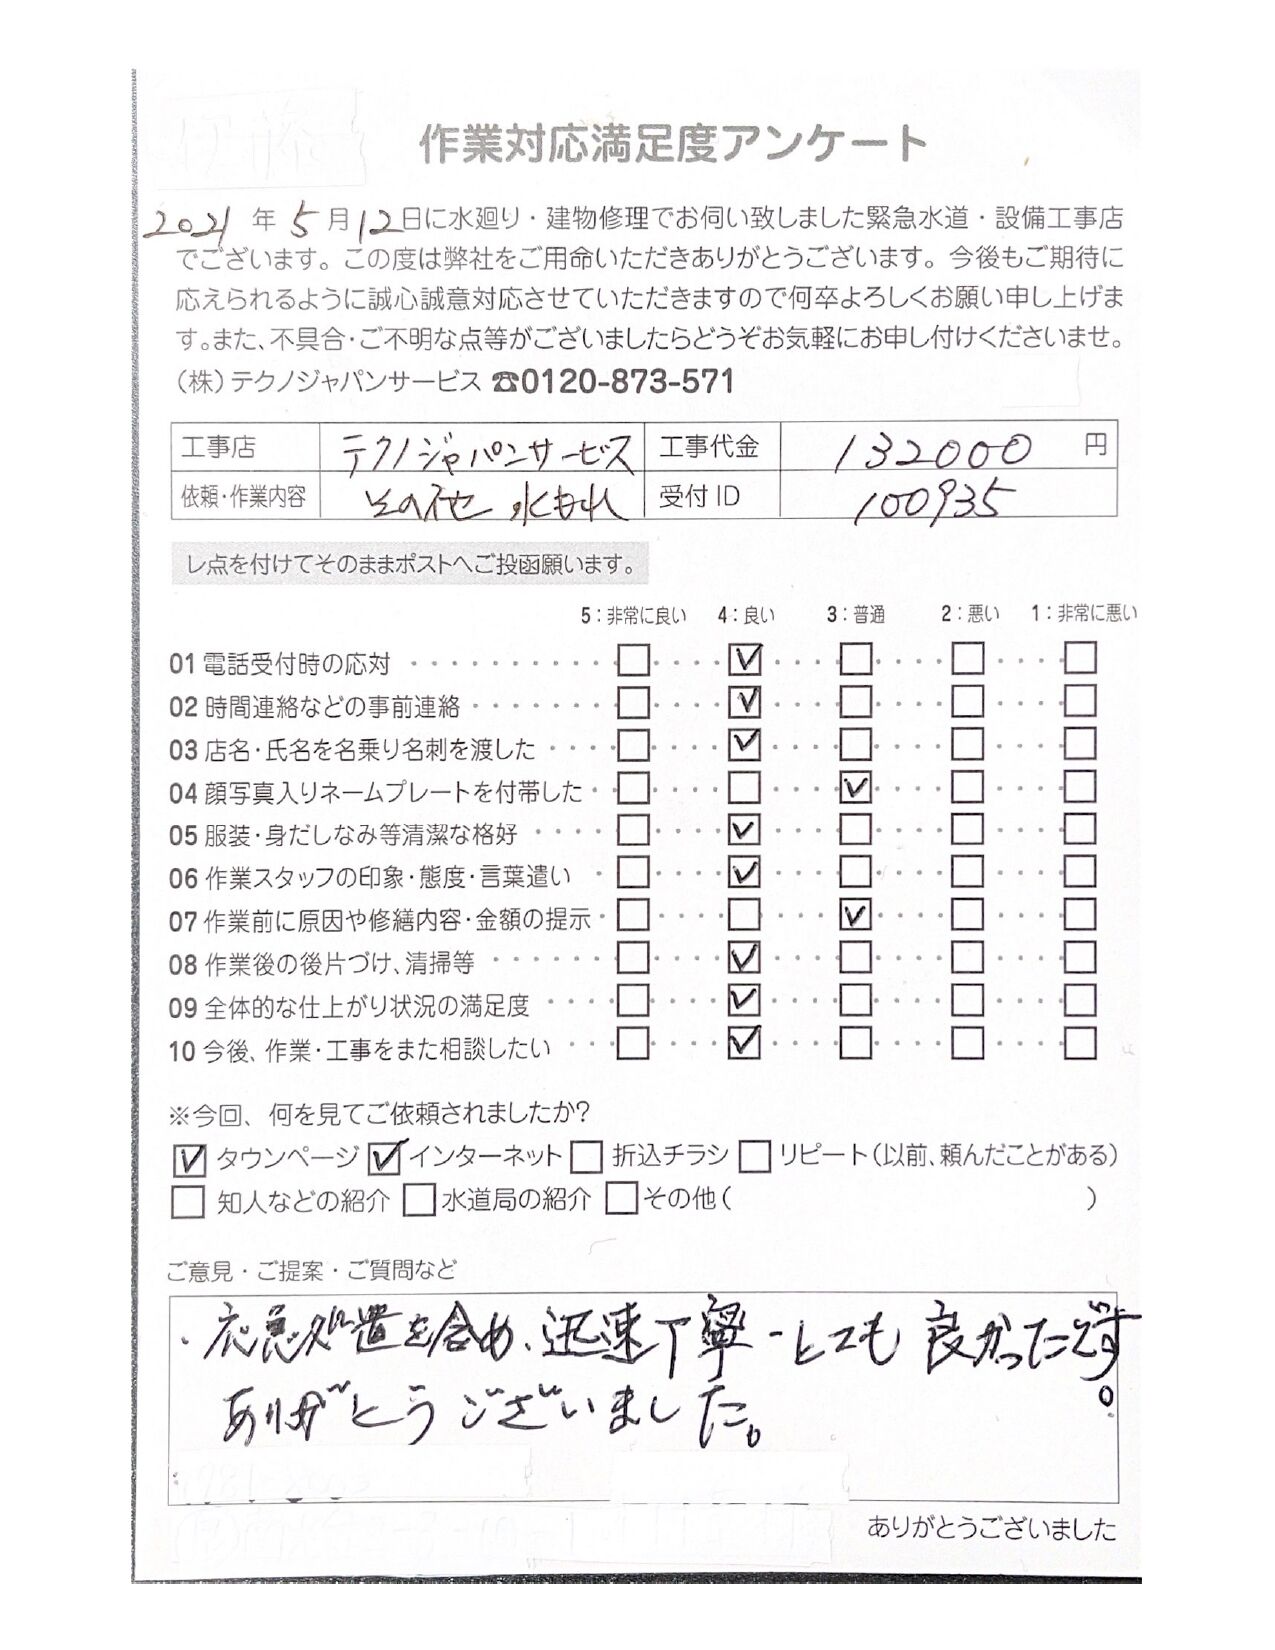 作業対応満足度アンケート
2021年5月12日に水廻り・建物修理でお伺い致しました緊急水道・設備工事店
でございます。この度は弊社をご用命いただきありがとうございます。今後もご期待に
応えられるように誠心誠意対応させていただきますので何卒よろしくお願い申し上げま
す。また、不具合・ご不明な点等がございましたらどうぞお気軽にお申し付けくださいませ。
（株）テクノジャパンサービス ☎0120-873-571
工事店 テクノジャパンサービス 工事代金 132000 円
依頼・作業内容 その他 水もれ 受付ID 100935
レ点を付けてそのままポストへご投函願います。
5：非常に良い 4：良い 3：普通 2：悪い 1：非常に悪い
01 電話受付時の応対 ･･･････････ □････☑････□････□････□
02 時間連絡などの事前連絡 ･･･････ □････☑････□････□････□
03 店名・氏名を名乗り名刺を渡した ････ □････☑････□････□････□
04 顔写真入りネームプレートを付帯した ･･ □････□････☑････□････□
05 服装・身だしなみ等清潔な格好 ･････ □････☑････□････□････□
06 作業スタッフの印象・態度・言葉遣い ･ □････☑････□････□････□
07 作業前に原因や修繕内容・金額の提示 ･ □････□････☑････□････□
08 作業後の後片づけ、清掃等 ･･･････ □････☑････□････□････□
09 全体的な仕上がり状況の満足度 ････ □････☑････□････□････□
10 今後、作業・工事をまた相談したい ･･･ □････☑････□････□････□
※今回、何を見てご依頼されましたか？
☑タウンページ ☑インターネット □折込チラシ □リピート（以前、頼んだことがある）
□知人などの紹介 □水道局の紹介 □その他（ ）
ご意見・ご提案・ご質問など
・応急処置を含め、迅速丁寧でとても良かったです。
ありがとうございました。
ありがとうございました